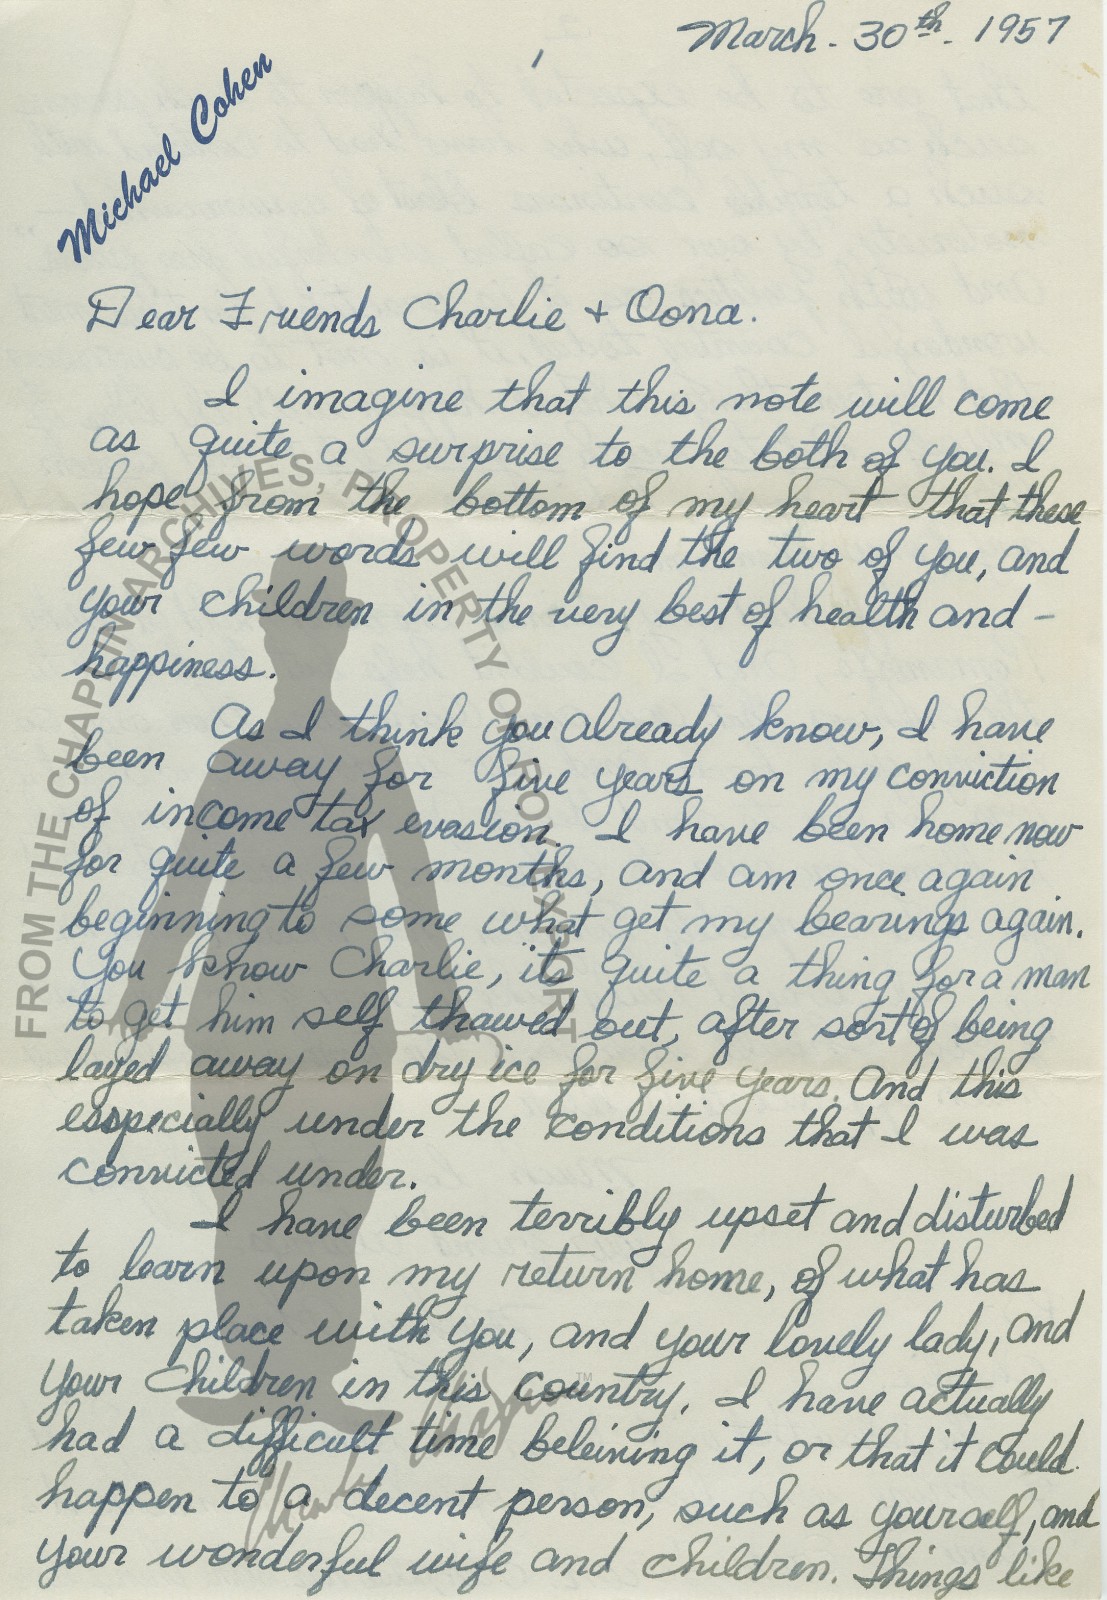 March. 30th. 1957
Michael Cohen
Dear Friends Charlie + Oona.
I imagine that this note will come
as quite a surprise to the both of you. I
hope from the bottom of my heart that these
few few words will find the two of you, and
your children in the very best of health and -
happiness.
As I think you already know, I have
been away for five years on my conviction
of income tax evasion. I have been home now
for quite a few months, and am once again
beginning to some what get my bearings again.
You know Charlie, its quite a thing for a man
to get him self thawed out, after sort of being
layed away on dry ice for five years. And this
especially under the conditions that I was
convicted under.
I have been terribly upset and disturbed
to learn upon my return home, of what has
taken place with you, and your lovely lady, and
your children in this country. I have actually
had a difficult time beleiving it, or that it could
happen to a decent person, such as yourself, and
your wonderful wife and children. Things like
FROM THE CHAPLIN ARCHIVES, PROPERTY OF ROY EXPORT
TM